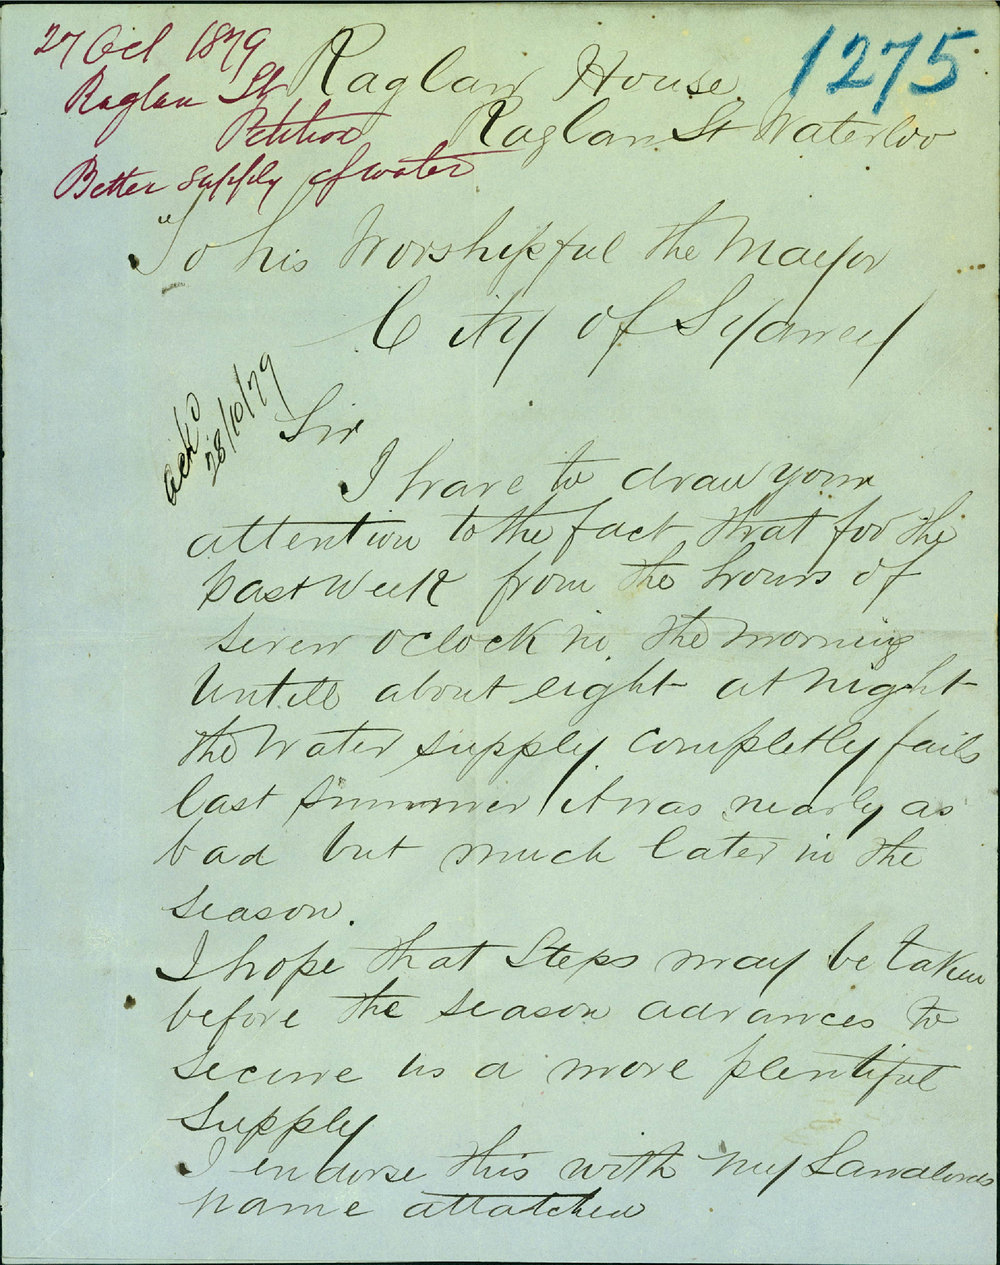 27 Oct 1879
Raglan St
Petition
Better supply of water
1275
Raglan House
Raglan St Waterloo
"To his Worshipful the Mayor
City of Sydney
ackd
28/10/79
Sir
I have to draw your
attention to the fact that for the
past week from the hours of
seven oclock in the morning
Untill about eight at night
the Water supply completly fails
last summer it was nearly as
bad but much later in the
season.
I hope that Steps may be taken
before the season advances to
secure us a more plentiful
Supply
I endorse this with my Landlords
name attatched